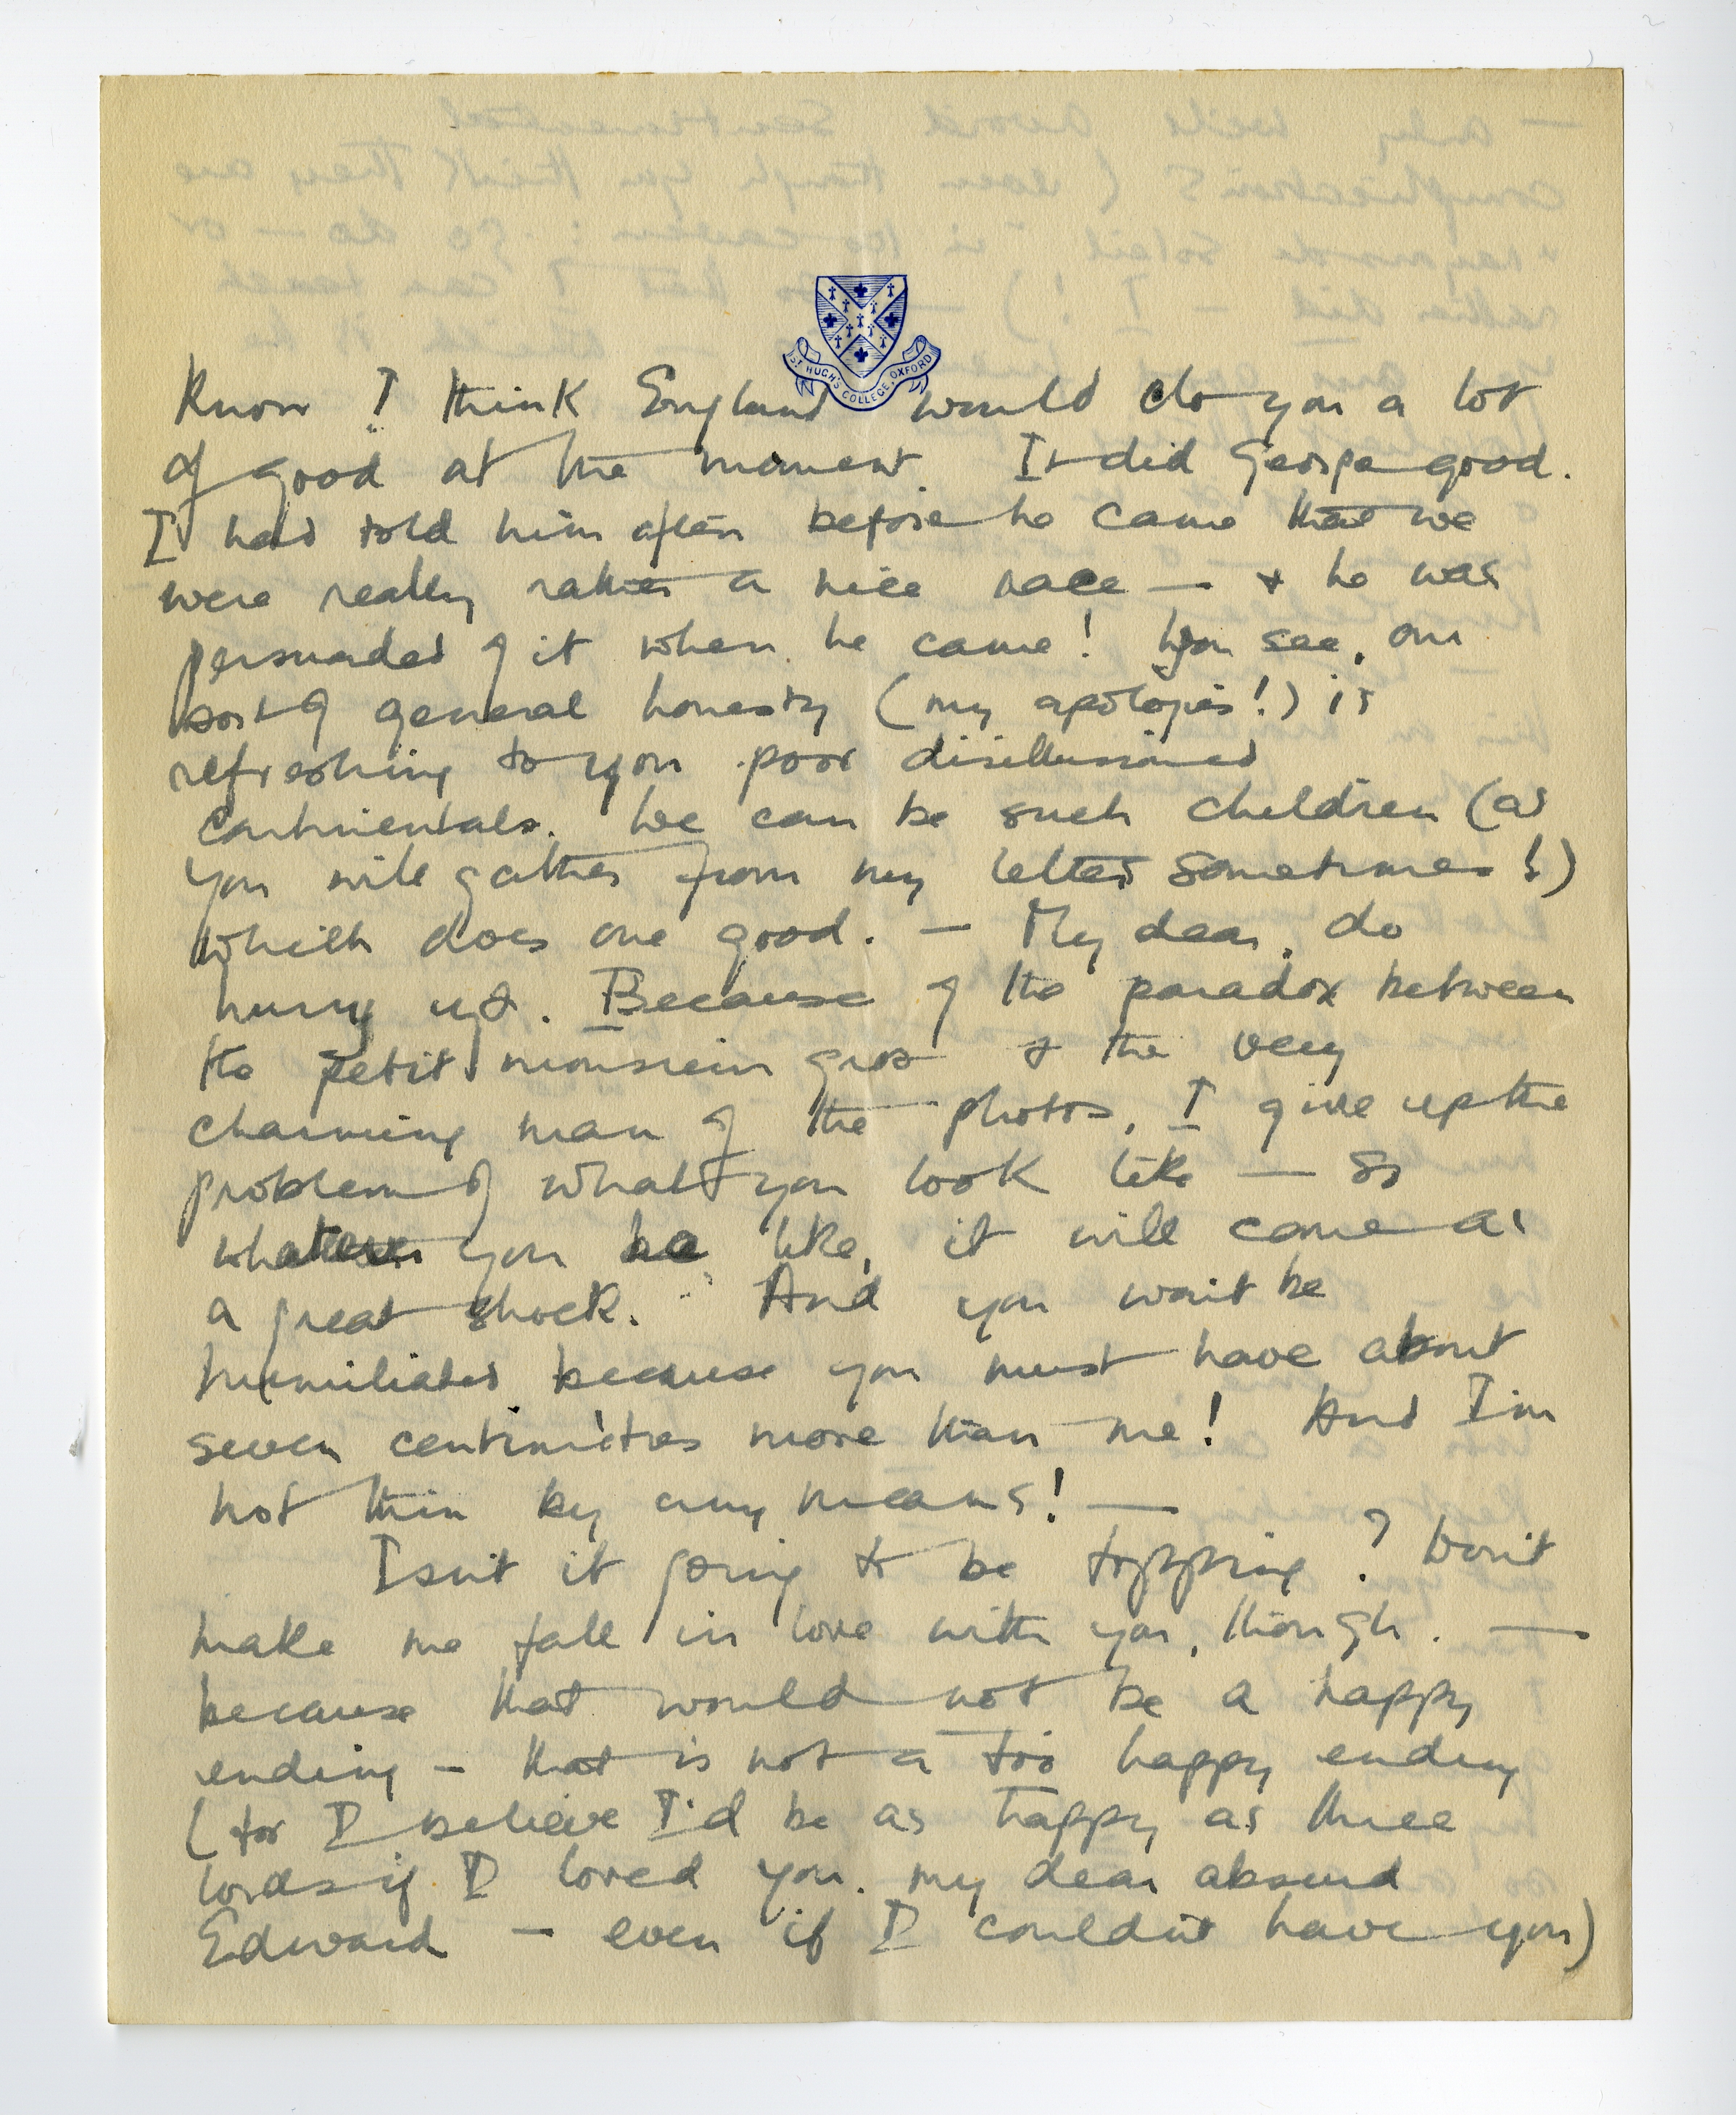 ST HUGH'S COLLEGE, OXFORD
Know I think England would do you a lot
of good at the moment. It did George good.
I had told him often before he came that we
were really rather a nice race — & he was
persuaded of it when he came! You see, our
sort of general honesty (my apologies!) is
refreshing to you poor disillusioned
continentals. We can be such children (as
you will gather from my letters sometimes!)
which does one good. — My dear, do
hurry up. Because of the paradox between
the petit monsieur gros & the very
charming man of the photos, I give up the
problem of what you look like — so
whatever you be like, it will come as
a great shock. And you won't be
humiliated because you must have about
seven centimètres more than me! And I'm
not thin by any means! —
Isn't it going to be topping? Don't
make me fall in love with you, though. —
because that would not be a happy
ending — that is not a too happy ending
(for I believe I'd be as happy as three
lords if I loved you. my dear absurd
Edward — even if I couldn't have you)